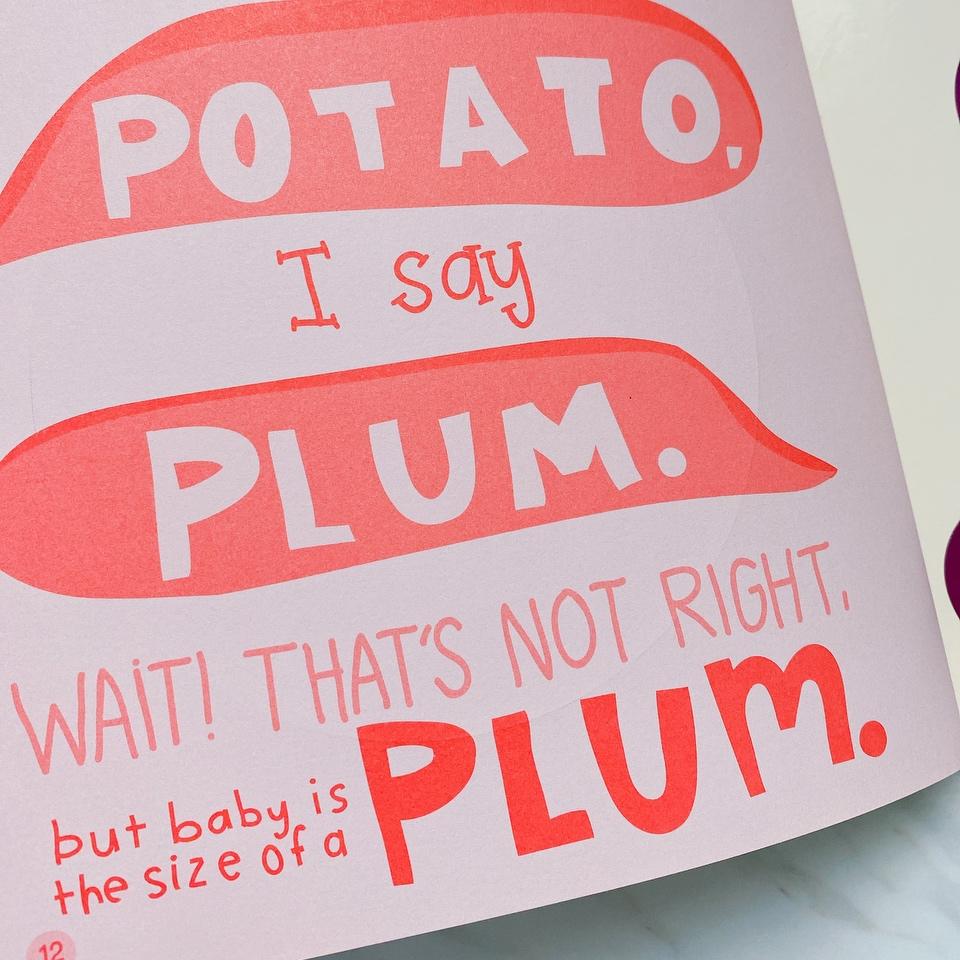 POTATO,
I say
PLUM.
WAIT! THAT'S NOT RIGHT,
but baby is
the size of a
PLUM.
12